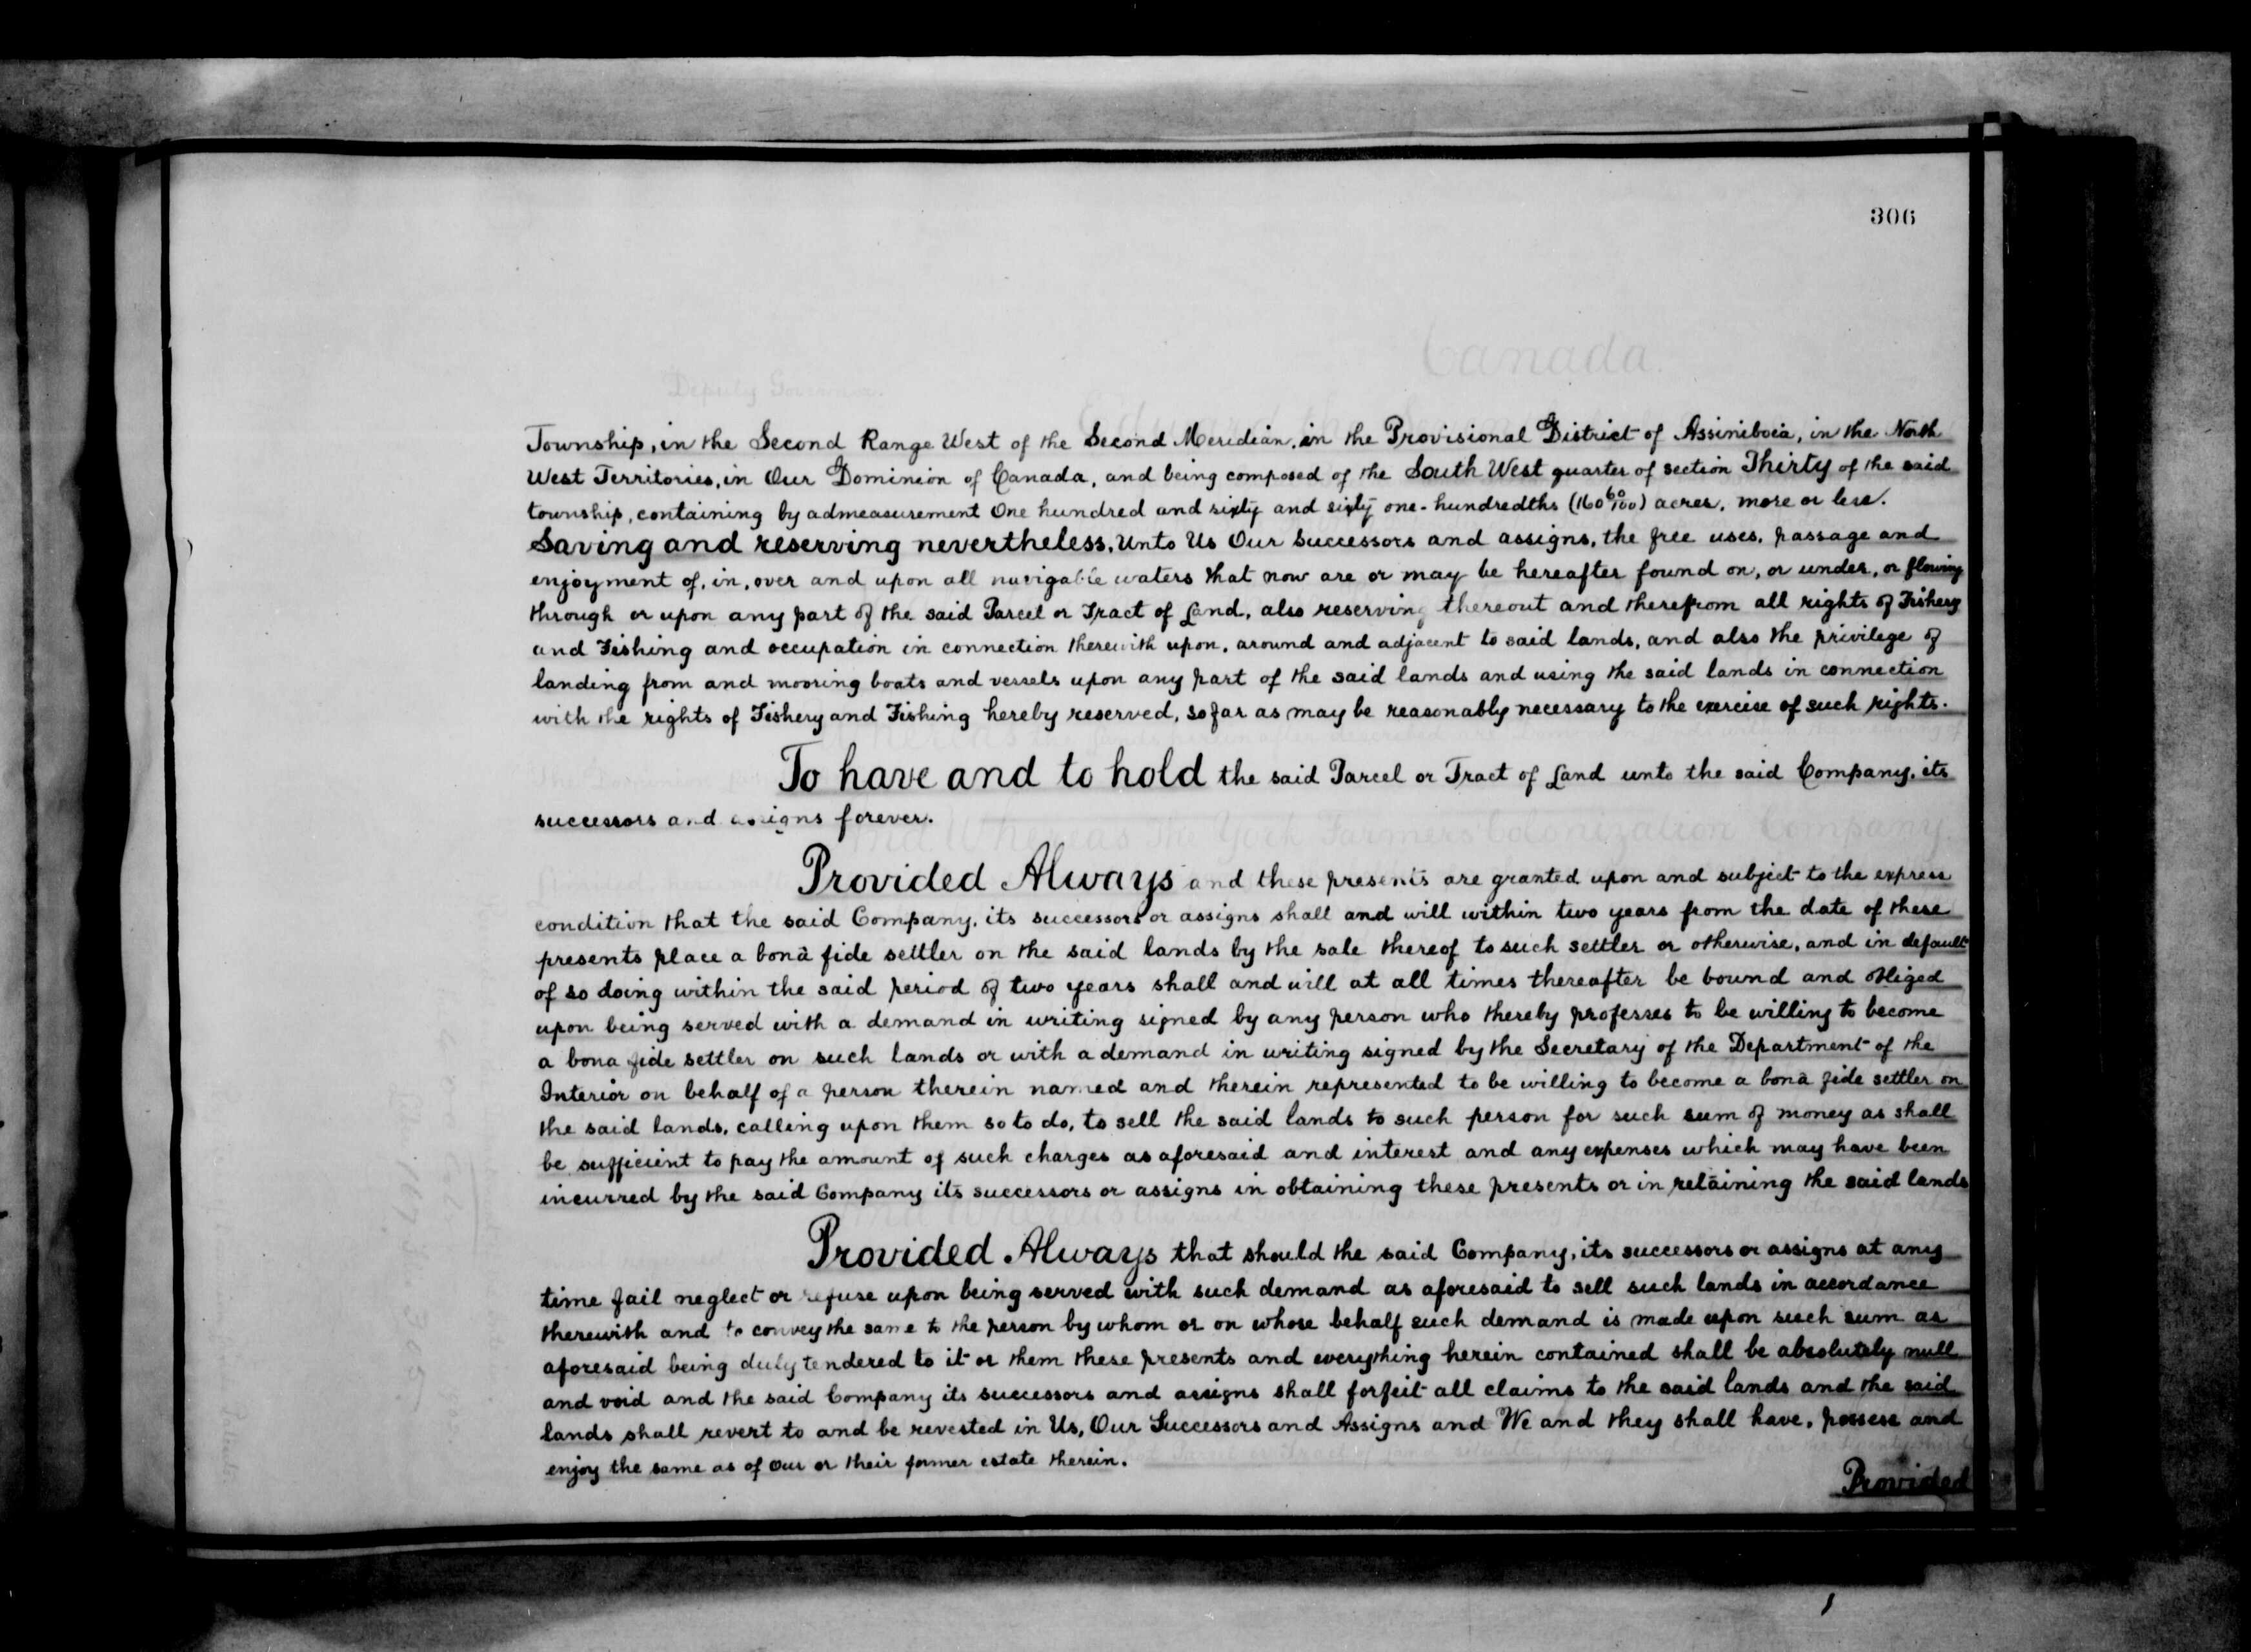 306
Canada.
Deputy Governor.
Township, in the Second Range West of the Second Meridian, in the Provisional District of Assiniboia, in the North
West Territories, in Our Dominion of Canada, and being composed of the South West quarter of section Thirty of the said
township, containing by admeasurement One hundred and sixty and sixty one-hundredths (160 60/100) acres, more or less.
Saving and reserving nevertheless, Unto Us Our Successors and assigns, the free uses, passage and
enjoyment of, in, over and upon all navigable waters that now are or may be hereafter found on, or under, or flowing
through or upon any part of the said Parcel or Tract of Land, also reserving thereout and therefrom all rights of Fishery
and Fishing and occupation in connection therewith upon, around and adjacent to said lands, and also the privilege of
landing from and mooring boats and vessels upon any part of the said lands and using the said lands in connection
with the rights of Fishery and Fishing hereby reserved, so far as may be reasonably necessary to the exercise of such rights.
To have and to hold the said Parcel or Tract of Land unto the said Company, its
successors and assigns forever.
Whereas The York Farmers Colonization Company,
Provided Always and these presents are granted upon and subject to the express
condition that the said Company, its successors or assigns shall and will within two years from the date of these
presents place a bonâ fide settler on the said lands by the sale thereof to such settler or otherwise, and in default
of so doing within the said period of two years shall and will at all times thereafter be bound and obliged
upon being served with a demand in writing signed by any person who thereby professes to be willing to become
a bona fide settler on such lands or with a demand in writing signed by the Secretary of the Department of the
Interior on behalf of a person therein named and therein represented to be willing to become a bonâ fide settler on
the said lands, calling upon them so to do, to sell the said lands to such person for such sum of money as shall
be sufficient to pay the amount of such charges as aforesaid and interest and any expenses which may have been
incurred by the said Company its successors or assigns in obtaining these presents or in retaining the said lands
Provided Always that should the said Company, its successors or assigns at any
time fail neglect or refuse upon being served with such demand as aforesaid to sell such lands in accordance
therewith and to convey the same to the person by whom or on whose behalf such demand is made upon such sum as
aforesaid being duly tendered to it or them these presents and everything herein contained shall be absolutely null
and void and the said Company its successors and assigns shall forfeit all claims to the said lands and the said
lands shall revert to and be revested in Us, Our Successors and Assigns and We and they shall have, possess and
enjoy the same as of Our or their former estate therein.
Provided